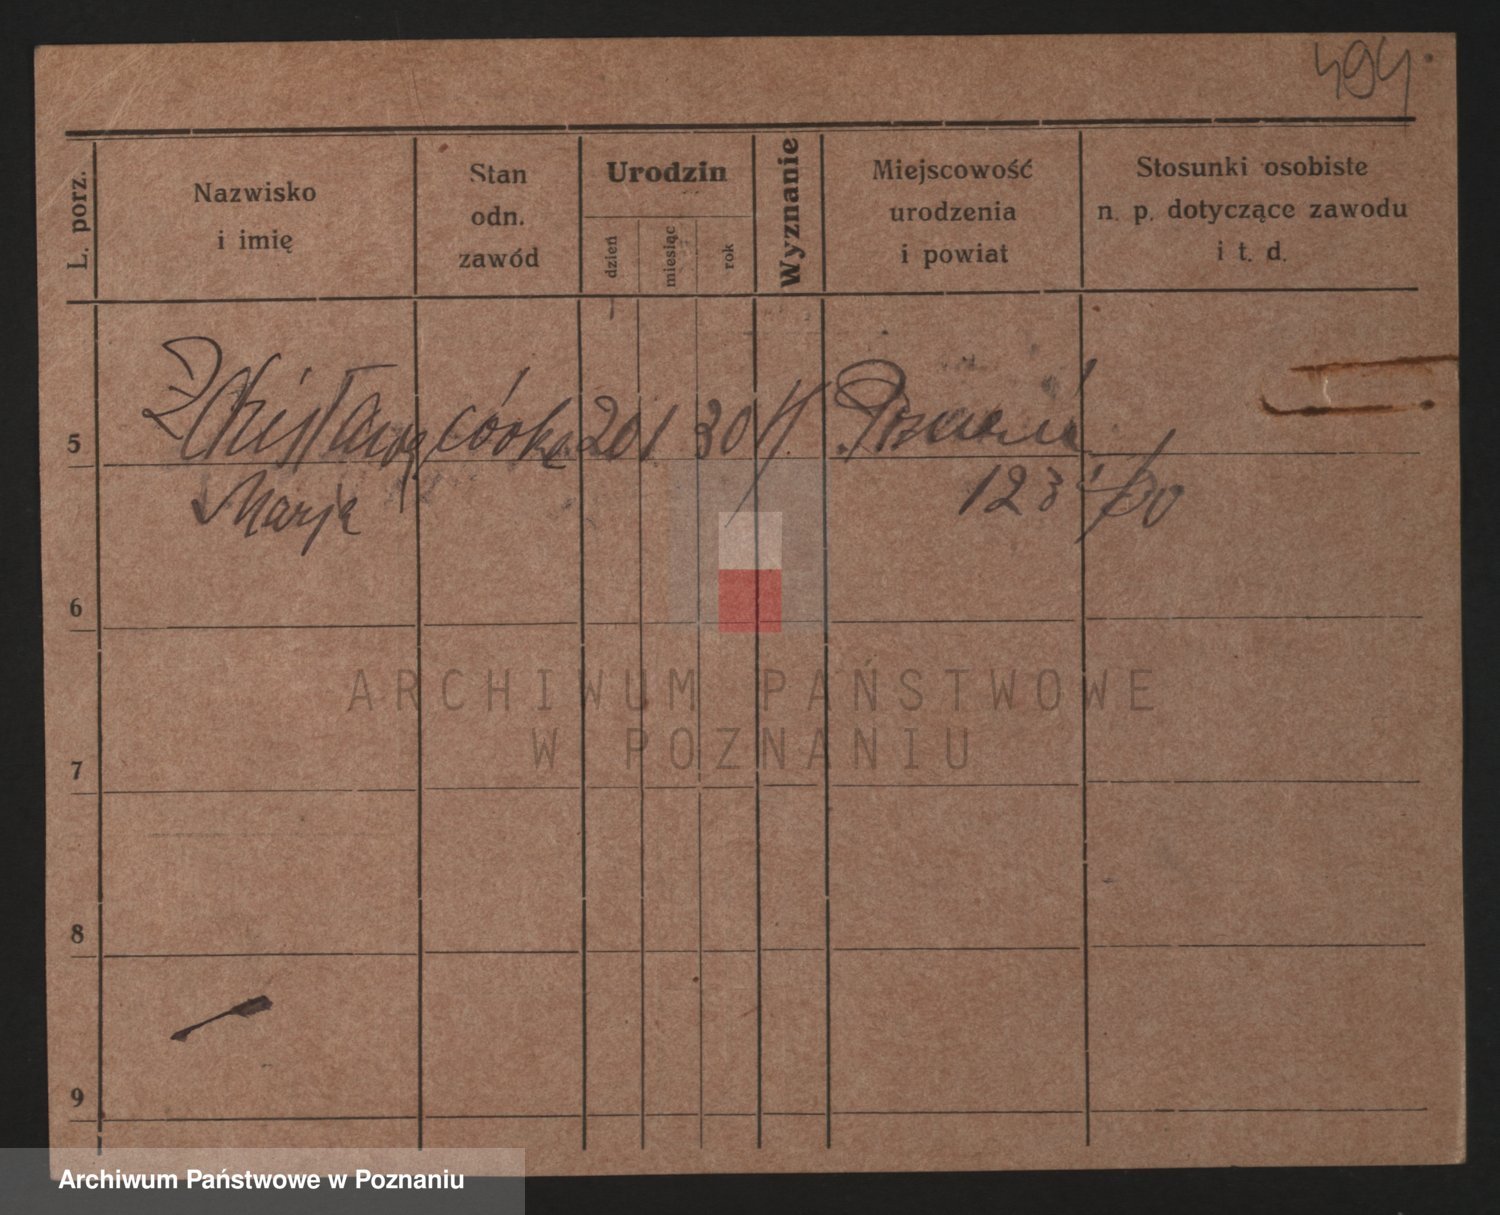 494
L. porz.
Nazwisko
i imię
Stan
odn.
zawód
Urodzin
dzień
miesiąc
rok
Wyznanie
Miejscowość
urodzenia
i powiat
Stosunki osobiste
n. p. dotyczące zawodu
i t. d.
5
córka 20 1 30 Poznań
Marja
123
6
7
8
9
ARCHIWUM PAŃSTWOWE
W POZNANIU
Archiwum Państwowe w Poznaniu